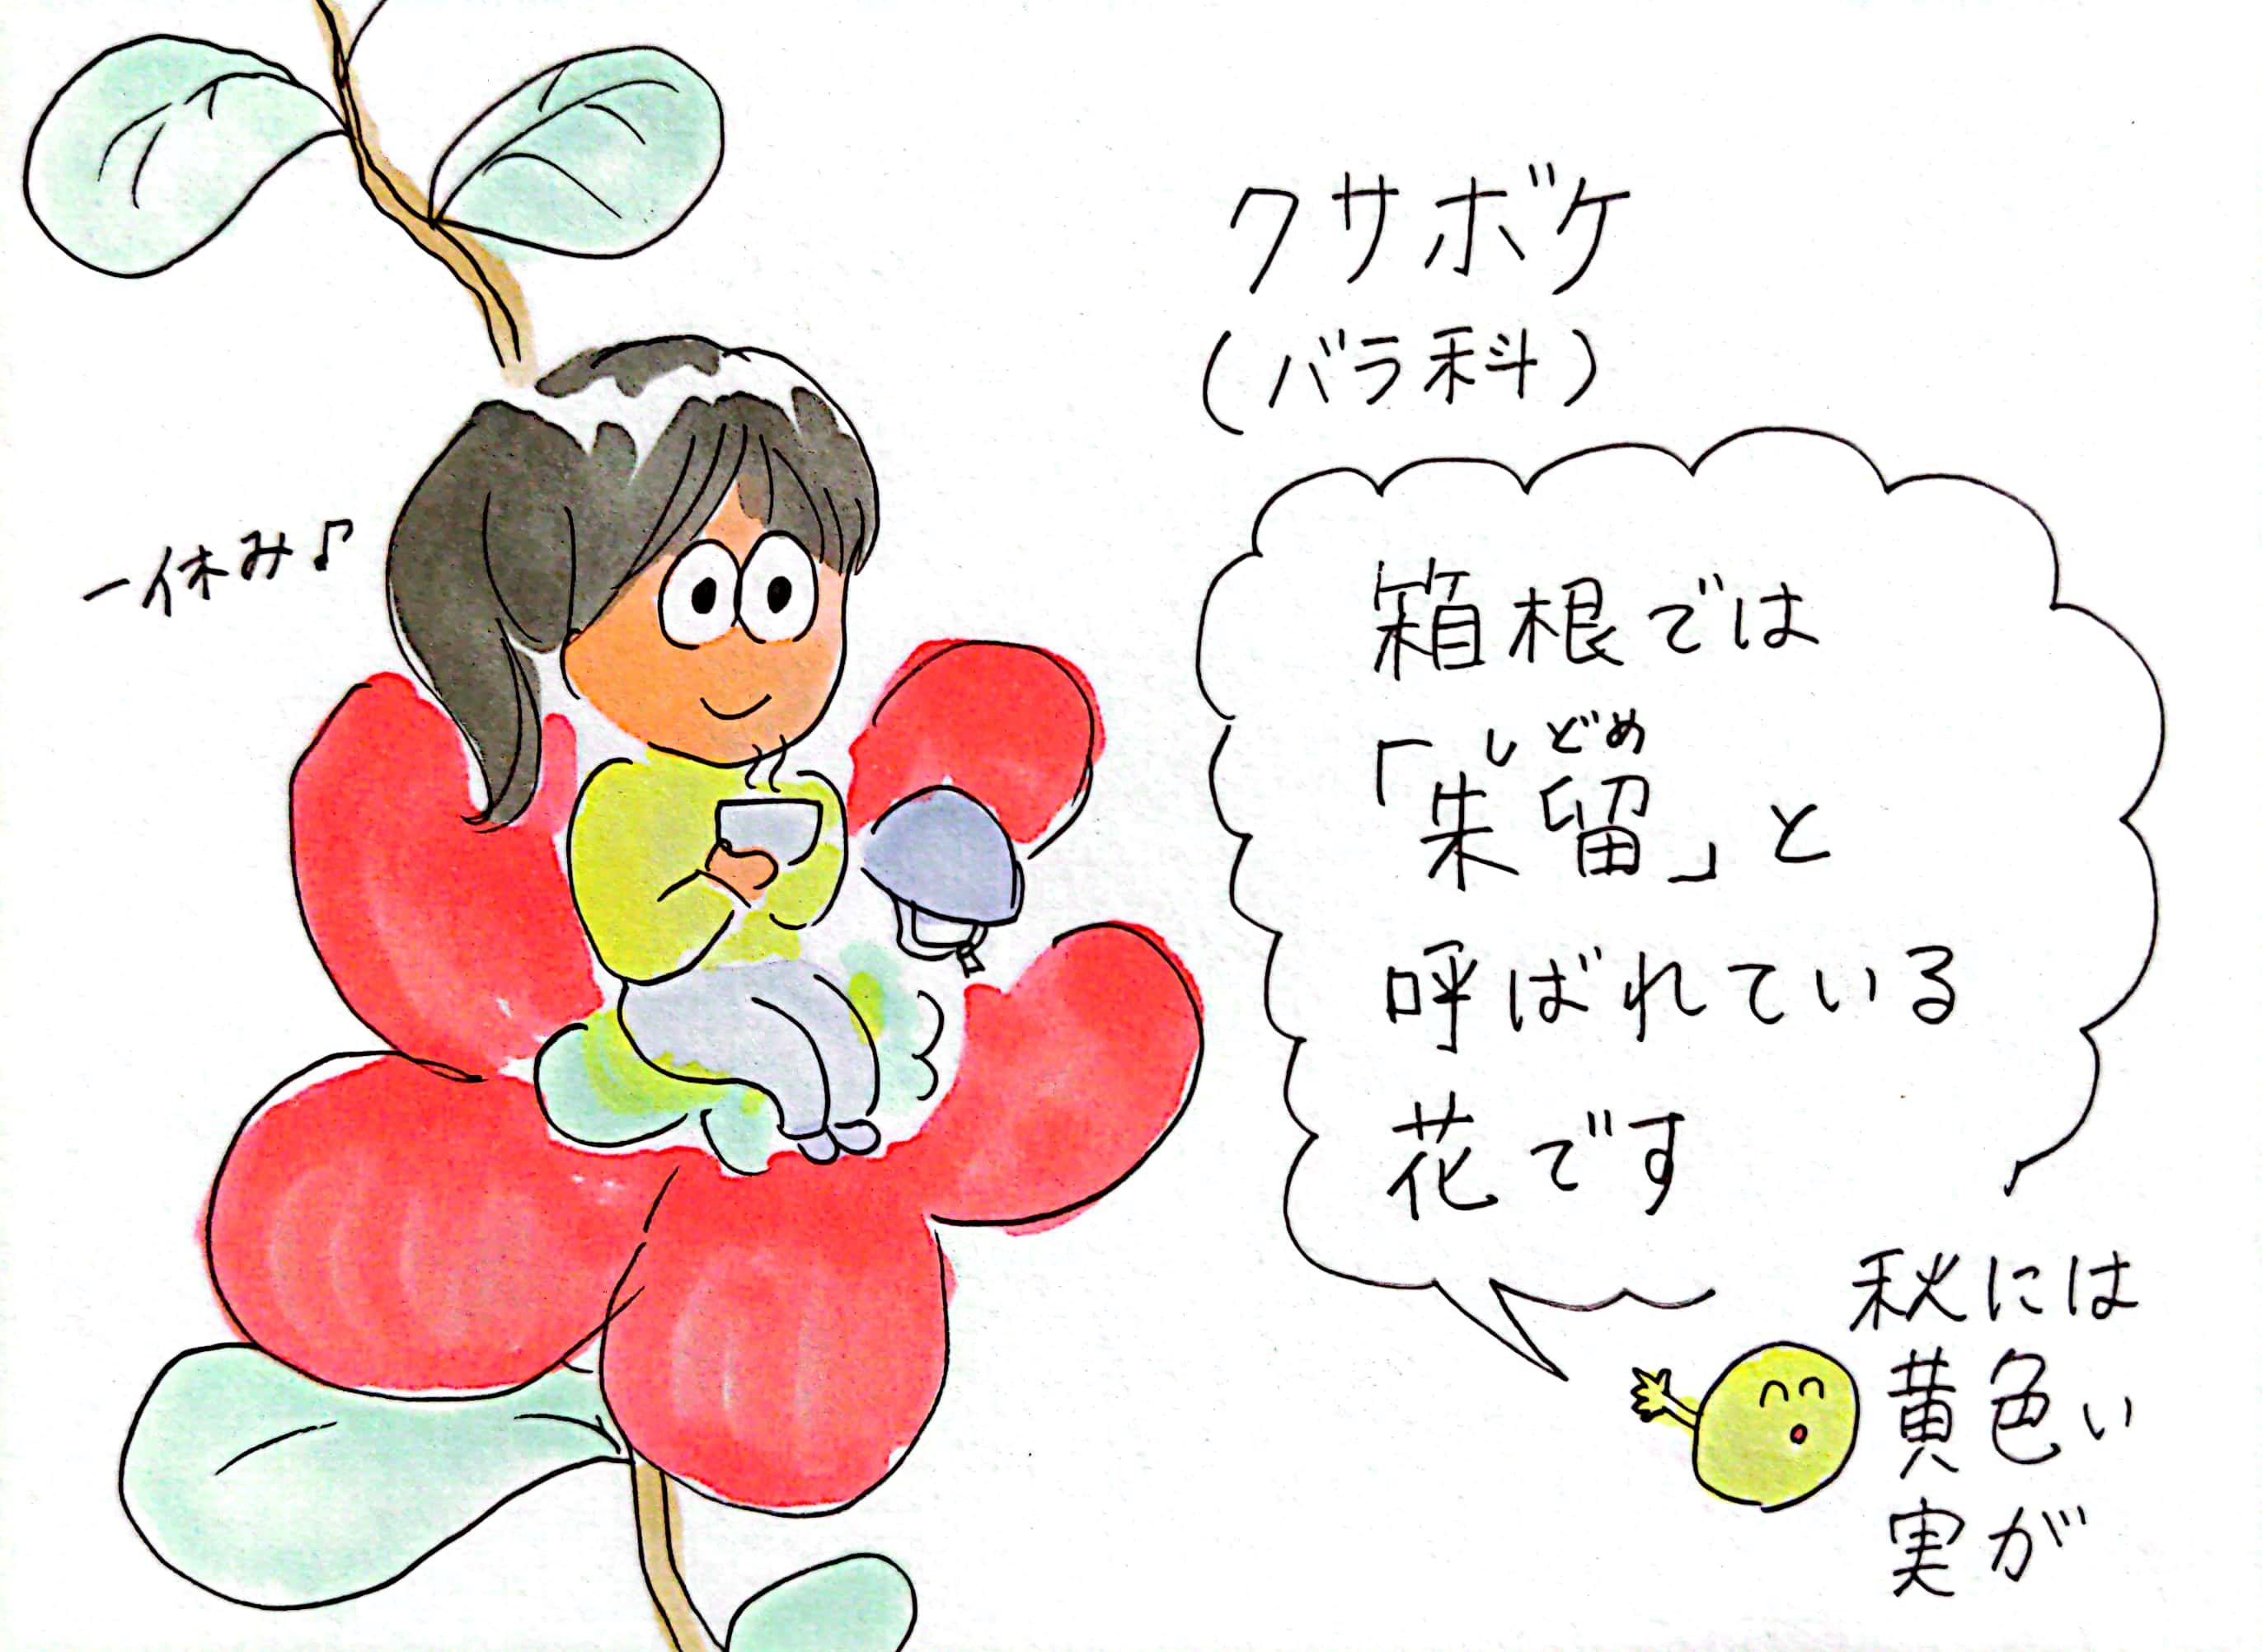 クサボケ
(バラ科)
一休み♪
箱根では
しどめ
「朱留」と
呼ばれている
花です
秋には
黄色い
実が